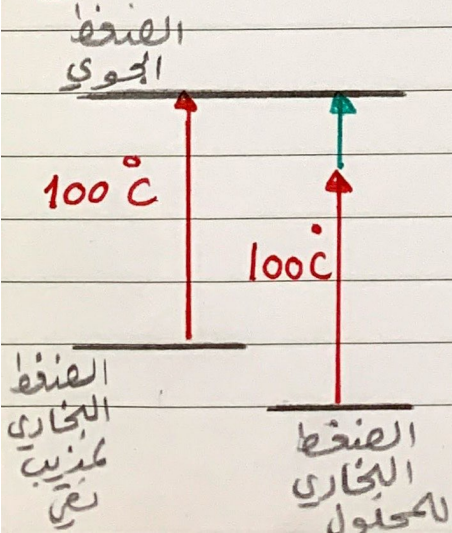 الضغط
الجوي
100 °C
100 °C
الضغط
البخاري
لمذيب
نقي
الضغط
البخاري
للمحلول